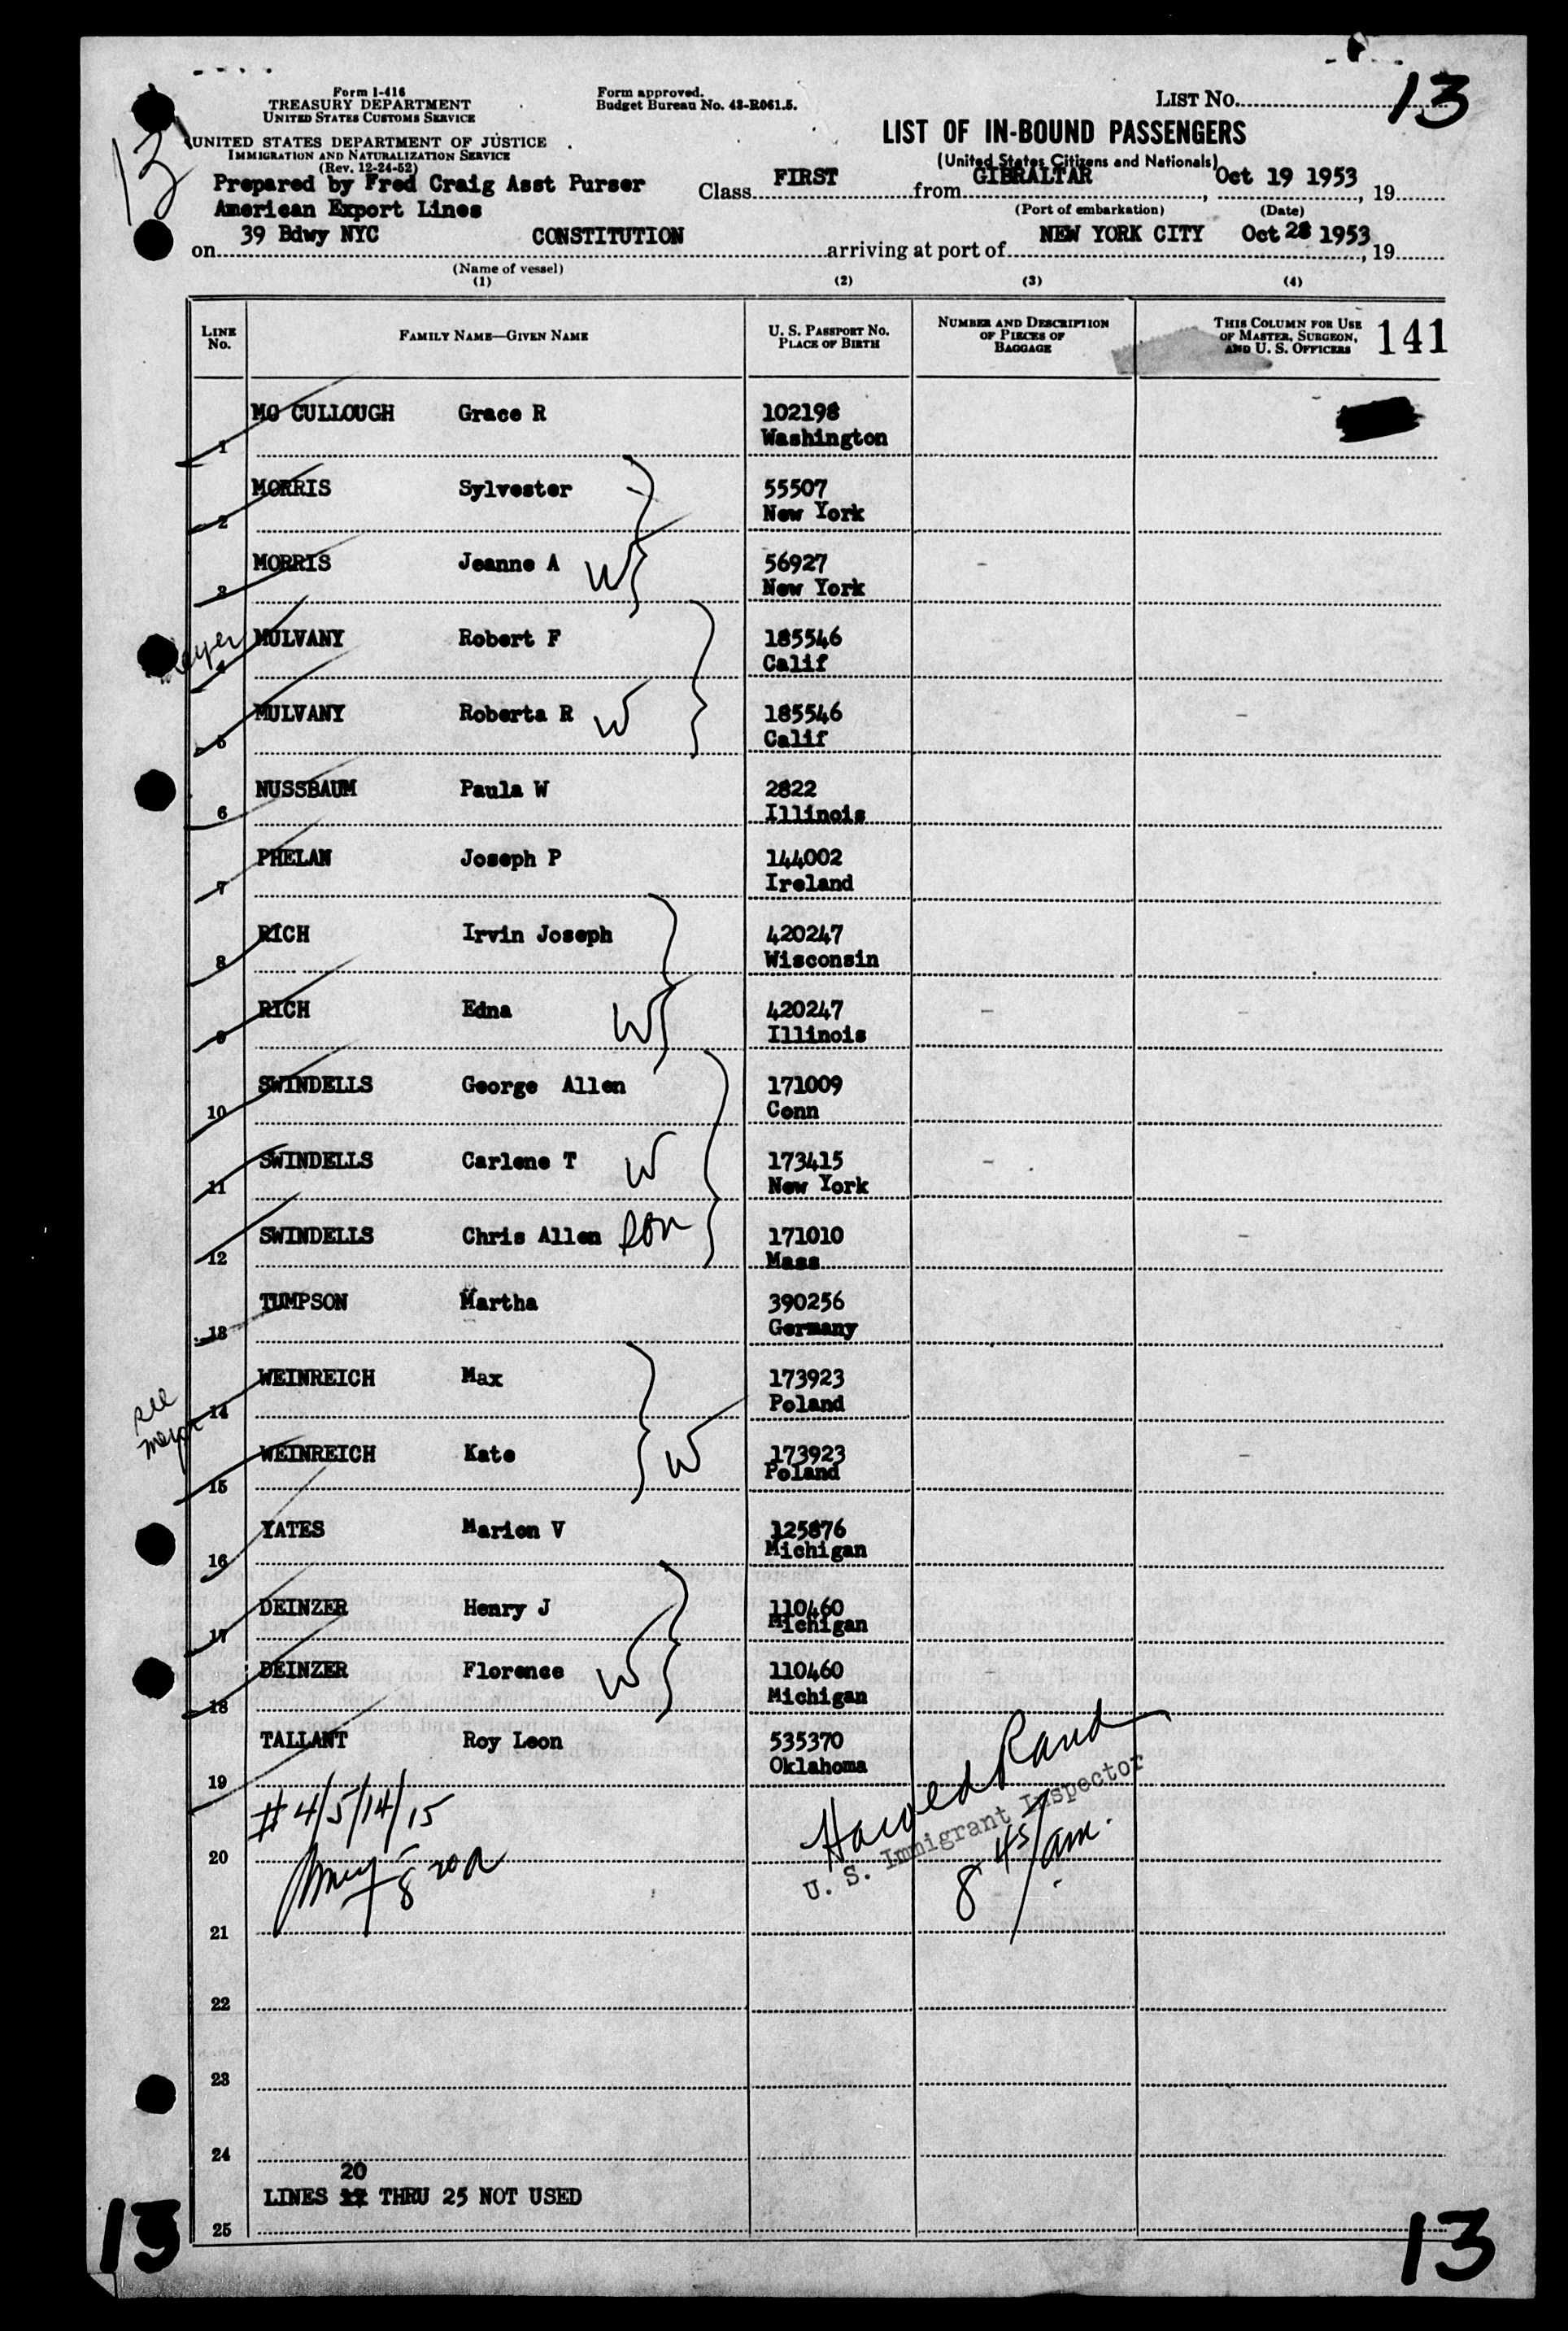 Form I-416
TREASURY DEPARTMENT
UNITED STATES CUSTOMS SERVICE
Form approved.
Budget Bureau No. 43-R061.5.
LIST NO. 13
13
UNITED STATES DEPARTMENT OF JUSTICE
IMMIGRATION AND NATURALIZATION SERVICE
(Rev. 12-24-52)
LIST OF IN-BOUND PASSENGERS
(United States Citizens and Nationals)
Prepared by Fred Craig Asst Purser
American Export Lines
Class FIRST from GIBRALTAR, Oct 19 1953, 19
(Port of embarkation) (Date)
on 39 Bdwy NYC CONSTITUTION arriving at port of NEW YORK CITY Oct 28 1953, 19
(Name of vessel)
(1) (2) (3) (4)
LINE NO. FAMILY NAME—GIVEN NAME U. S. PASSPORT NO. PLACE OF BIRTH NUMBER AND DESCRIPTION OF PIECES OF BAGGAGE THIS COLUMN FOR USE OF MASTER, SURGEON, AND U. S. OFFICERS 141
1 MC CULLOUGH Grace R 102198
Washington
2 MORRIS Sylvester 55507
New York
3 MORRIS Jeanne A W 56927
New York
4 MULVANY Robert F 185546
Calif
5 MULVANY Roberta R W 185546
Calif
6 NUSSBAUM Paula W 2822
Illinois
7 PHELAN Joseph P 144002
Ireland
8 RICH Irvin Joseph 420247
Wisconsin
9 RICH Edna W 420247
Illinois
10 SWINDELLS George Allen 171009
Conn
11 SWINDELLS Carlene T W 173415
New York
12 SWINDELLS Chris Allen son 171010
Mass
13 TUMPSON Martha 390256
Germany
see
14 WEINREICH Max 173923
Poland
15 WEINREICH Kate W 173923
Poland
16 YATES Marion V 125876
Michigan
17 DEINZER Henry J 110460
Michigan
18 DEINZER Florence W 110460
Michigan
19 TALLANT Roy Leon 535370
Oklahoma
#4/5/14/15
Harold Rand
U. S. Immigrant Inspector
8 45/am.
20
21
22
23
24
20
LINES 17 THRU 25 NOT USED
25
13
13